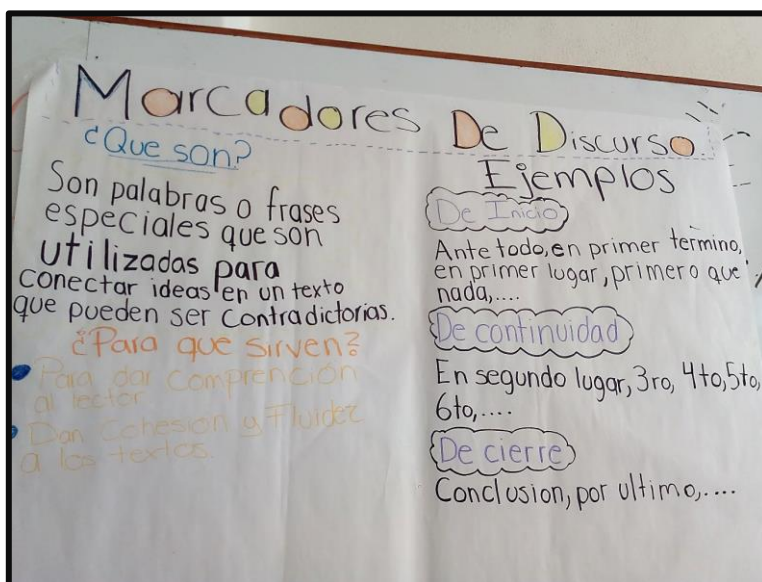 Marcadores De Discurso.
¿Que son?
Son palabras o frases
especiales que son
utilizadas para
conectar ideas en un texto
que pueden ser contradictorias.
¿Para que sirven?
Para dar comprención
al lector
Dan Cohesion y Fluidez
a los textos.
Ejemplos
De Inicio
Ante todo, en primer termino,
en primer lugar, primero que
nada,....
De continuidad
En segundo lugar, 3ro, 4to, 5to,
6to,....
De cierre
Conclusion, por ultimo,....